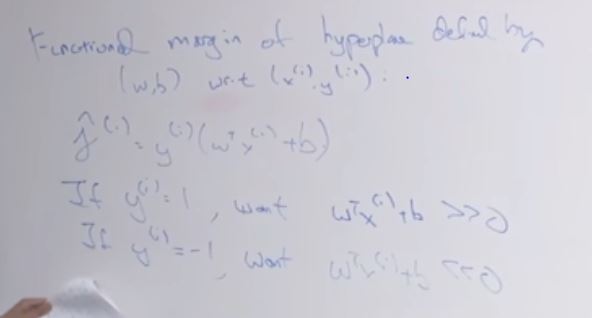 Functional margin of hyperplane defined by
(w,b) wrt (x⁽ⁱ⁾, y⁽ⁱ⁾):
γ̂⁽ⁱ⁾ = y⁽ⁱ⁾(wᵀx⁽ⁱ⁾+b)
If y⁽ⁱ⁾=1, want wᵀx⁽ⁱ⁾+b >>0
If y⁽ⁱ⁾=-1, want wᵀx⁽ⁱ⁾+b <<0